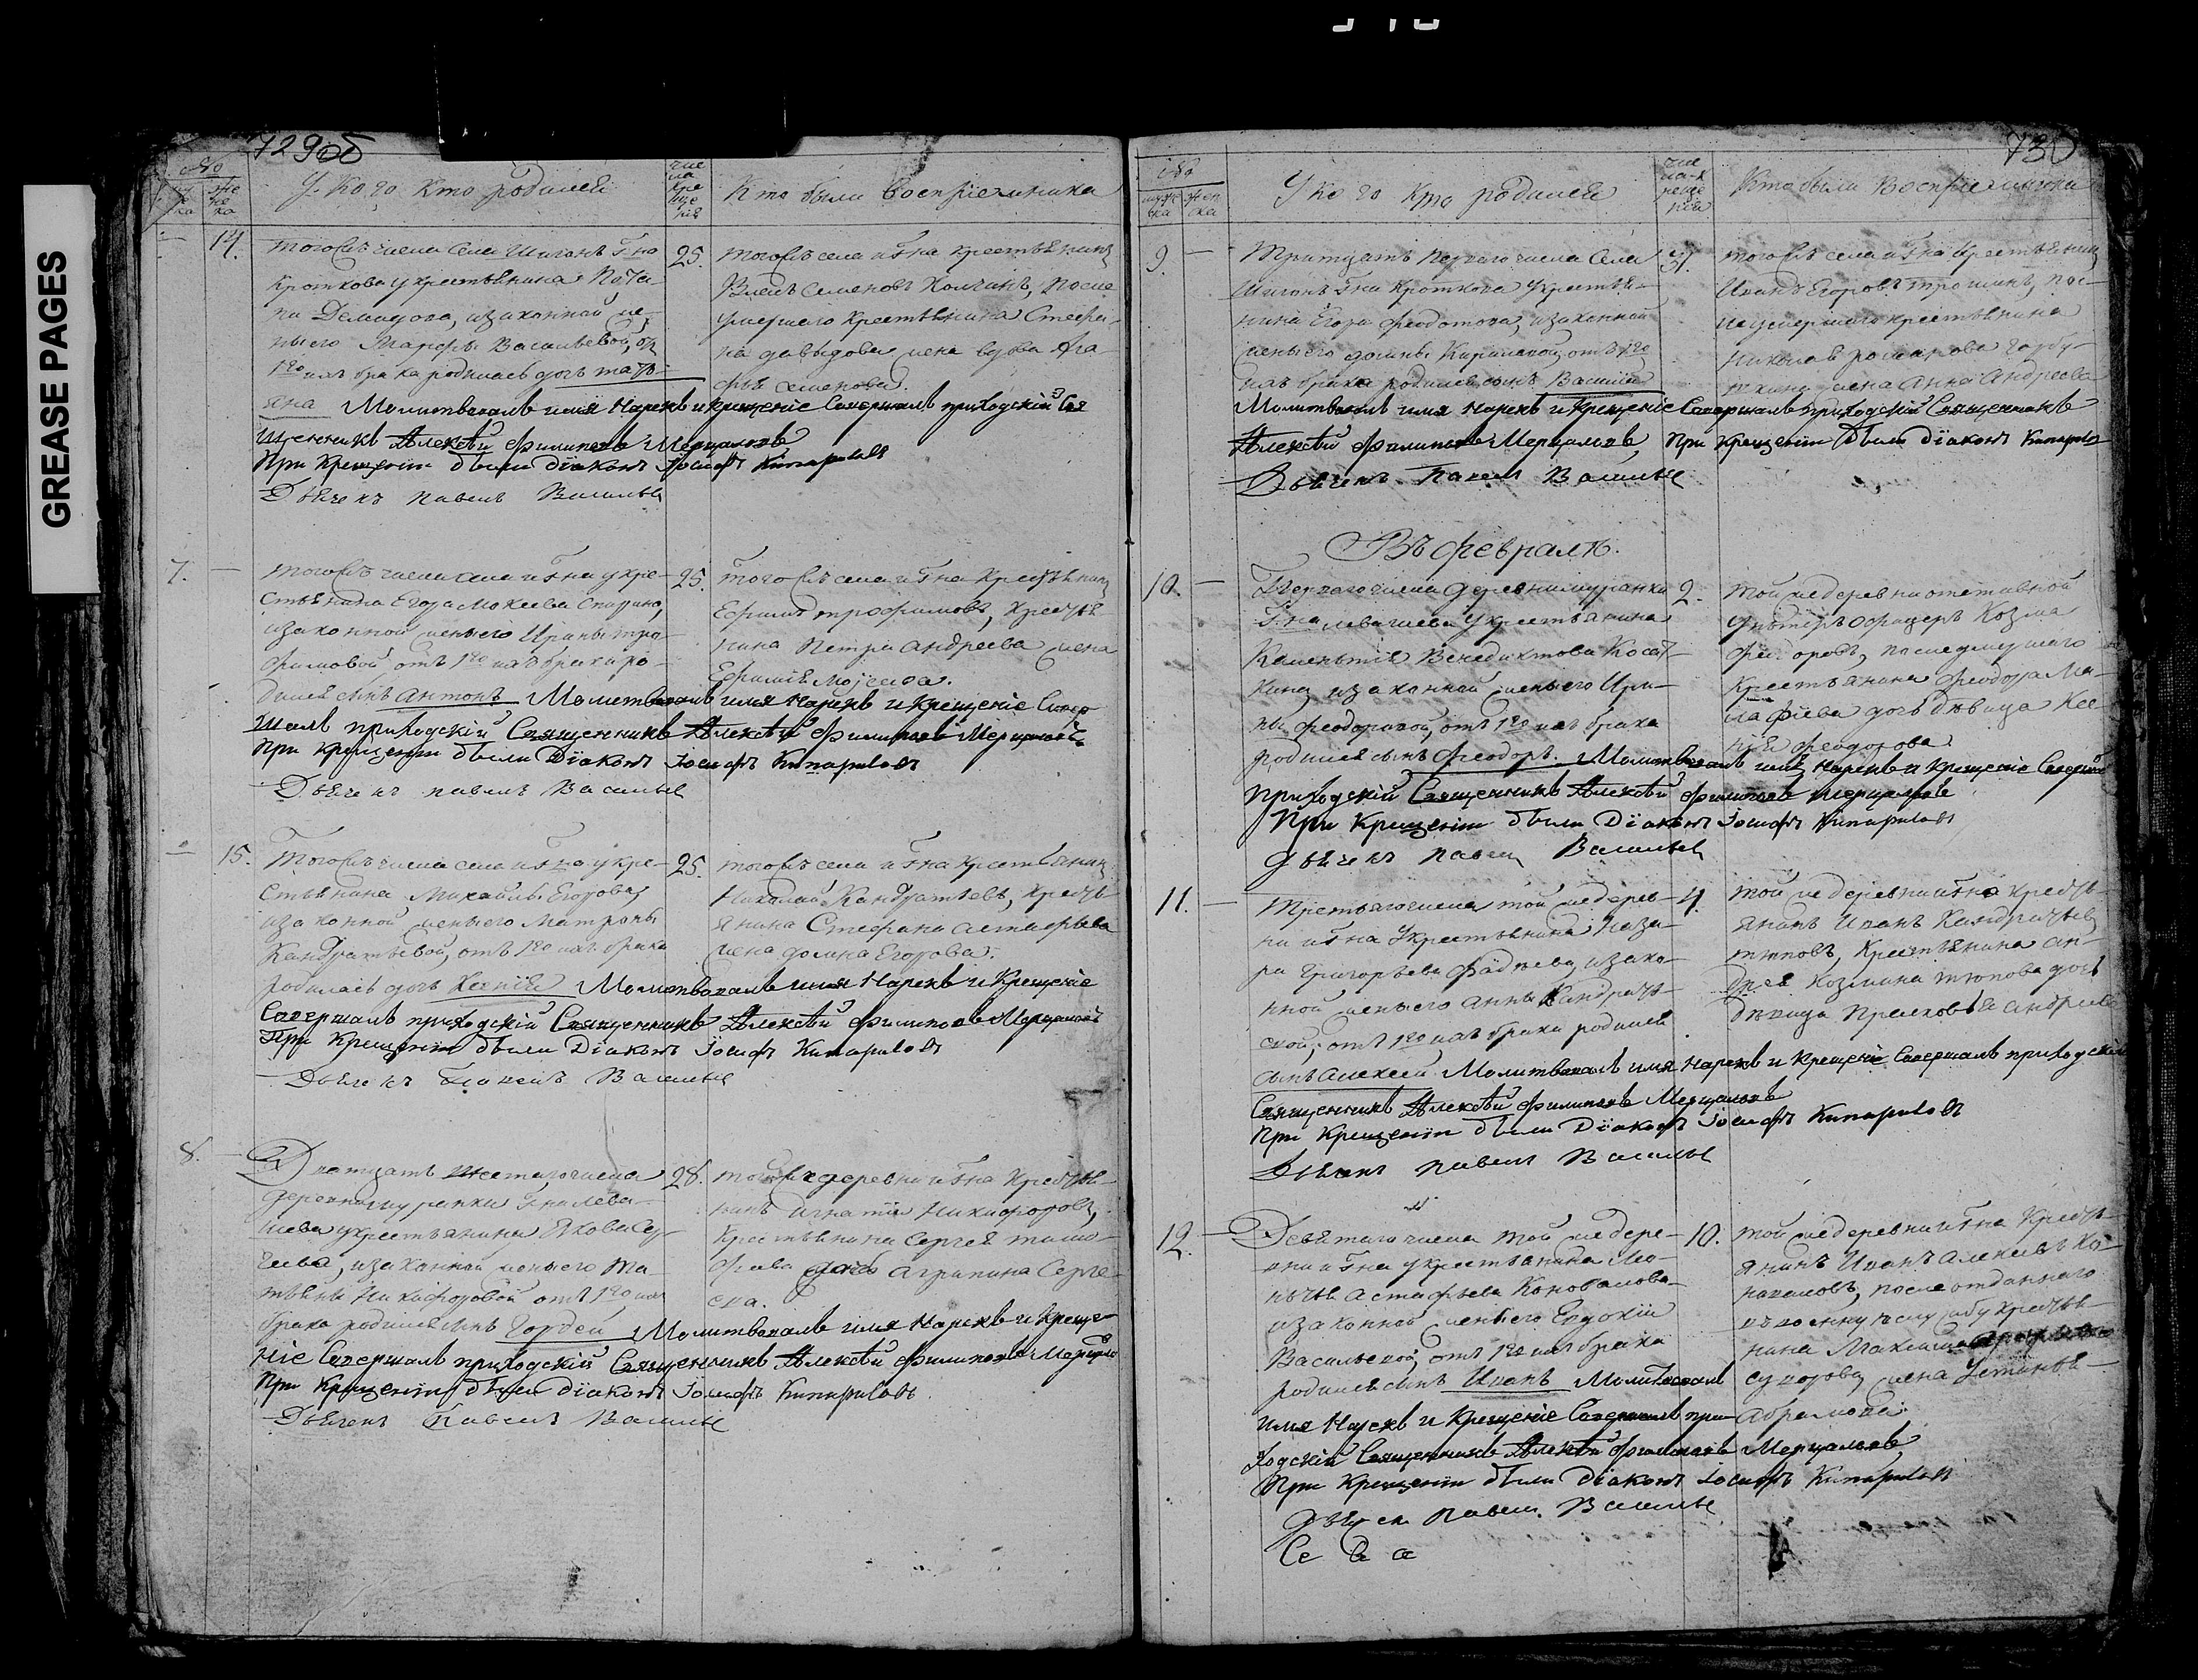 GREASE PAGES
729об
№
У Кого Кто родился
числа крещения
Кто были восприемники
14.
тогожъ числа села Шиганъ Гна
Кроткова у крестьянина Пота-
па Демидова, иззаконной же-
ны его Марфы Васильевой, от
1го ихъ брака родилась дочь Татъ-
яна Молитвовалъ имя Нарекъ и крещеніе Совершалъ приходскій Свя
щенникъ Алексѣй Филиповъ Мерцаловъ
При Крещеніи были Діаконъ Іосифъ Кипарисовъ
Дьячекъ Павелъ Васильев
25.
тогожъ села и Гна крестьянинъ
Семеновъ после
умершаго крестьянина Стефа-
на Давыдова жена вдова Ага-
фья Семенова.
7.
тогожъ числа села и Гна у кре-
стьянина Егора Мокеева
иззаконной жены его Ирины Тро-
фимовой отъ 1го ихъ брака ро-
дился сынъ Антонъ Молитвовалъ имя Нарекъ и Крещеніе Совер
шалъ приходскій Священникъ Алексѣй Филиповъ Мерцаловъ
При крещеніи были Діаконъ Іосифъ Кипарисовъ
Дьячекъ Павелъ Васильев
25.
тогожъ села и Гна Крестьянинъ
Ефимъ Трофимовъ, крестья
нина Петра Андреева жена
15.
Тогожъ числа села и Гна у кре-
стьянина Михайлы Егорова,
иззаконной жены его Матроны
Кандратьевой, отъ 1го ихъ брака
родилась дочь Ксенія Молитвовалъ имя Нарекъ и Крещеніе
Совершалъ приходскій Священникъ Алексѣй Филиповъ Мерцаловъ
При Крещеніи были Діаконъ Іосифъ Кипарисовъ
Дьячекъ Павелъ Васильев
25.
тогожъ села и Гна крестьянинъ
Николай Кандратьевъ, кресть-
янина Стефана Астафьева
жена Домна Егорова.
8.
Дватцать шестаго числа
деревни Муранки Гна Лева-
шева у крестьянина Якова Сер-
геева, иззаконной жены его Та-
тьяны Никифоровой отъ 1го ихъ
брака родился сынъ Гордей Молитвовалъ имя Нарекъ и Креще-
ніе Совершалъ приходскій Священникъ Алексѣй Филиповъ Мерцалов
При Крещеніи были діаконъ Іосифъ Кипарисовъ
Дьячекъ Павелъ Васильев
28.
тойже деревни и Гна Крестья-
нинъ Игнатій Никифоровъ,
Крестьянина Сергея Тимо-
феева дочь Агрипина Серге-
ева.
730
№
У кого Кто родился
числа крещенія
Кто были Восприемники
9.
Тритцать перваго числа Села
Шиганъ Гна Кроткова у крестья-
нина Егора Федотова, иззаконной
жены его Домны Кириловой, отъ 1го
ихъ брака родился сынъ Василій
Молитвовалъ имя Нарекъ и Крещеніе Совершалъ приходскій Священникъ
Алексѣй Филиповъ Мерцаловъ, При Крещеніи были діаконъ Кипарисов
Дьячекъ Павелъ Васильев
31.
тогожъ села и Гна Крестьянин
Иванъ Егоровъ Трошинъ, пос-
ле умершаго крестьянина
Николая Романова Горбу-
нкина жена Анна Андреева
Въ Февралѣ.
10.
Перваго числа Деревни Муранки
Гна Левашева у крестьянина
Клементія Венедиктова Косат-
кина, иззаконной жены его Ири-
ны Феодоровой, отъ 1го ихъ брака
родился сынъ Феодоръ. Молитвовалъ имя Нарекъ и Крещеніе Соверш
Приходскій Священникъ Алексѣй Филиповъ Мерцаловъ
При Крещеніи были Діаконъ Іосифъ Кипарисовъ
Дьячекъ Павел Васильев
2.
той же деревни отставной
Унтеръ офицеръ Козма
Федоровъ, после умершаго
Крестьянина Феодора Ма-
лафеева дочь девица Ксе-
нія Феодорова
11.
Третьяго числа той же дерев-
ни и Гна у крестьянина Наза-
ра Григорьева Фадѣева, иззако-
нной жены его Анны Кандратье-
вой, отъ 1го ихъ брака родился
сынъ Алексей Молитвовалъ имя Нарекъ и Крещеніе Совершалъ приходскій
Священникъ Алексѣй Филиповъ Мерцаловъ
При Крещеніи были Діаконъ Іосифъ Кипарисовъ
Дьячекъ Павелъ Васильев
4.
той же деревни и Гна кресть-
янинъ Иванъ Кандратьев
Тюповъ, Крестьянина Ан-
дрея Козмина Тюпова дочь
девица Прасковья Андреева
12.
Девятаго числа той же дере-
вни и Гна у крестьянина Мо-
кѣя Астафьева Коновалова
иззаконной жены его Евдокіи
Васильевой, отъ 1го ихъ брака
родился сынъ Иванъ Молитвовалъ
имя Нарекъ и Крещеніе Совершалъ при-
ходскій Священникъ Алексѣй Филиповъ Мерцаловъ
При Крещеніи были Діаконъ Іосифъ Кипарисовъ
Дьячек Павел Васильев
10.
той же деревни и Гна Кресть-
янинъ Иванъ Алексеевъ Ко-
новаловъ, после отданнаго
въ военну службу крестья-
нина Максима
Суворова жена Устинья
Абрамова.